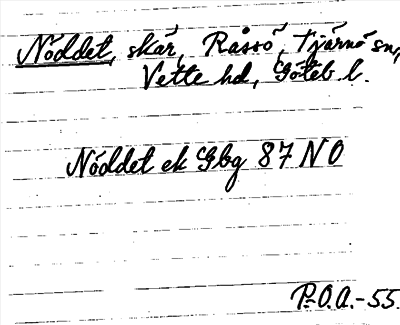 Nöddet, skär, Råssö, Tjärnö sn,
Vette hd, Göteb. l.
Nöddet ek Gbg 87 NO
P.O.A.-55.